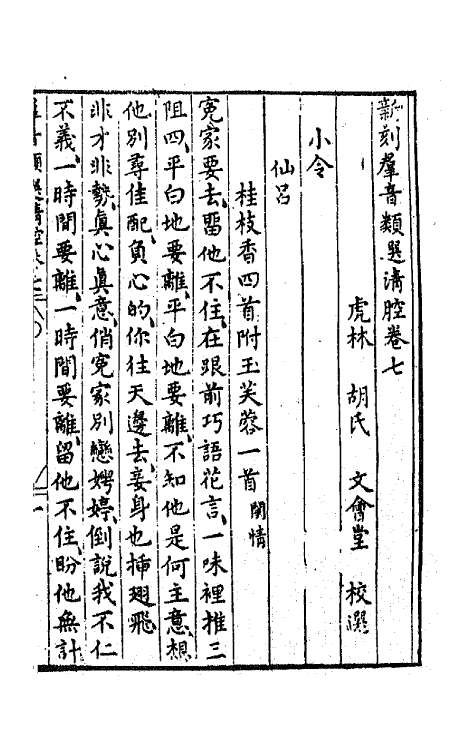 新刻羣音類選清腔卷七
虎林 胡氏 文會堂 校選
小令
仙呂
桂枝香四首附玉芙蓉一首 閨情
寃家要去、畱他不住、在跟前巧語花言、一味裡推三
阻四、平白地要離、平白地要離、不知他是何主意、想
他別尋佳配、負心的、你往天邊去、妾身也揷翅飛、
非才非貌、眞心眞意、俏寃家別戀娉婷、倒說我不仁
不義、一時間要離、一時間要離、留他不住、盼他無計